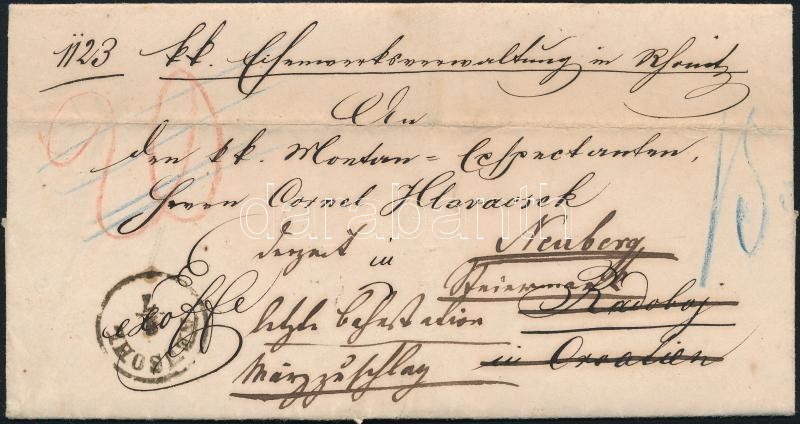 1123 kk. Eisenwerksverwaltung in Rhonitz
An
den kk. Montan=Exspectanten,
Herrn Cornel Hlavacsek
derzeit in Neuberg
Steiermark
Radoboj
in Croatien
exoffo
letzte Bahnstation
Mürzzuschlag
20
15
darabanth